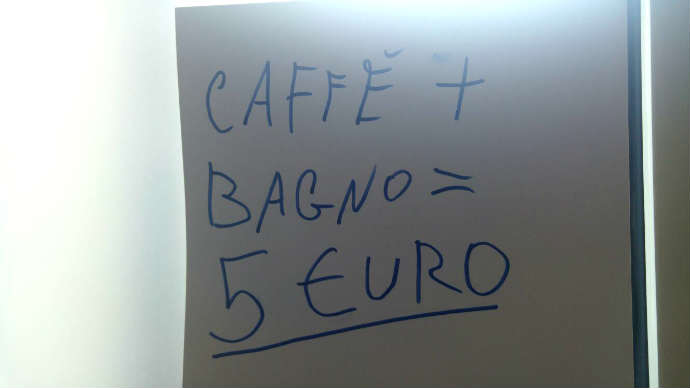 CAFFÈ +
BAGNO =
5 EURO